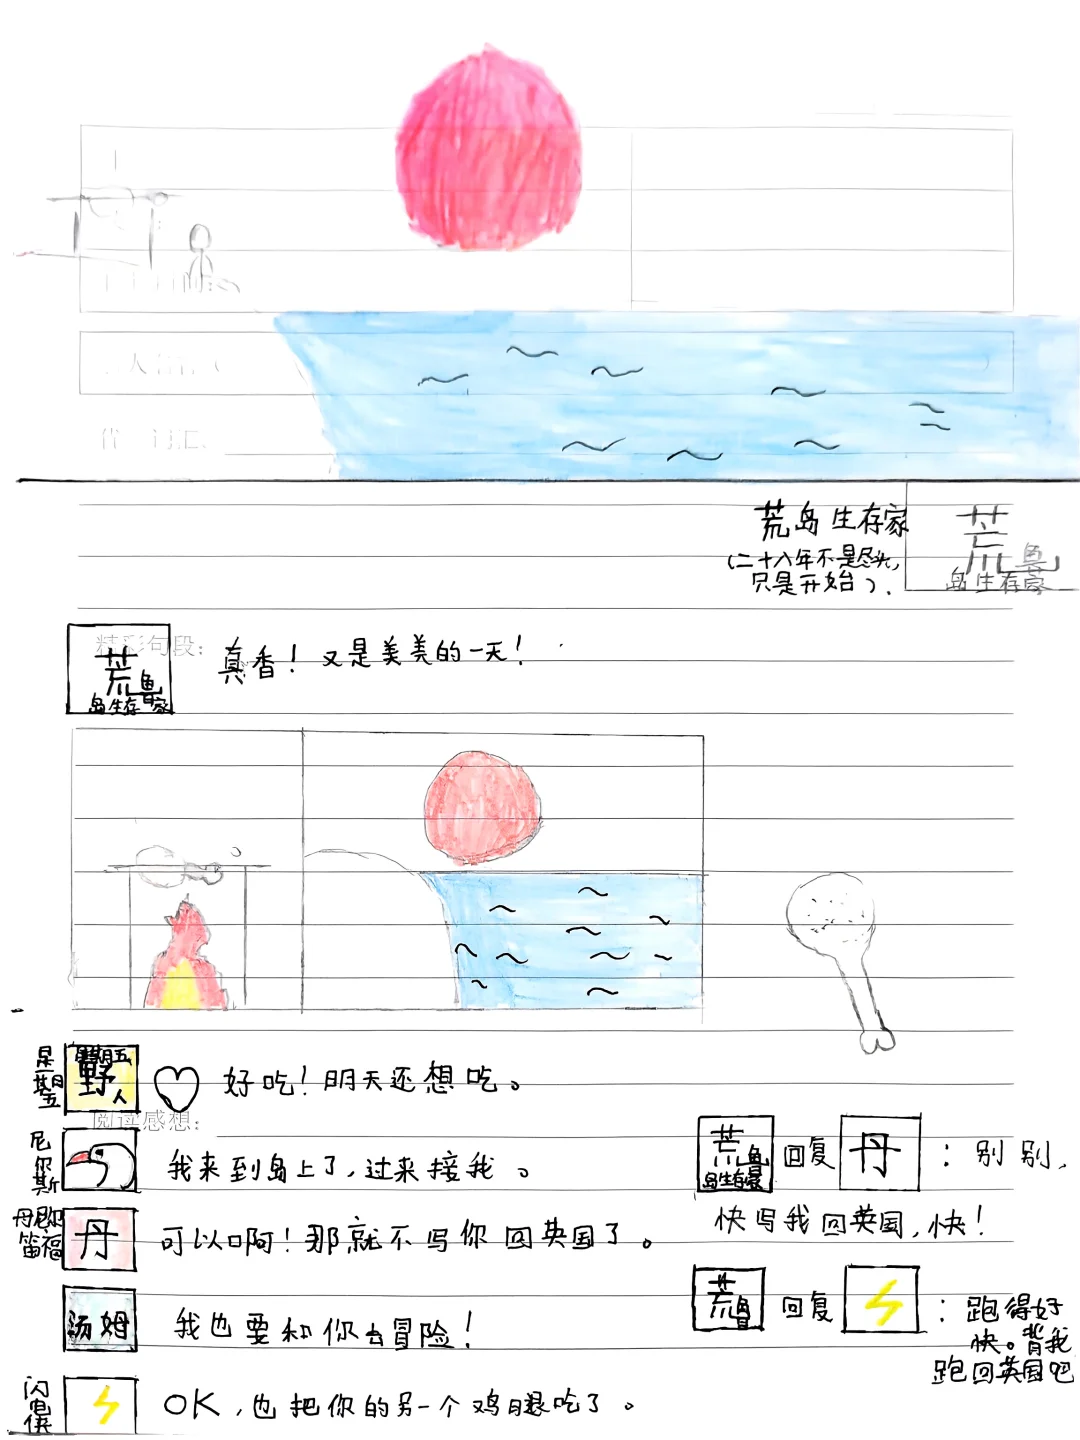 荒岛生存家
(二十八年不是尽头,
只是开始).
荒
鲁
岛生存家
精彩句段:
荒鲁
岛生存家
真香！又是美美的一天！
星期五
星期五
野人
好吃！明天还想吃。
阅读感想:
尼尔斯
我来到岛上了,过来接我。
荒鲁
岛生存家
回复
丹
：别别,
快写我回英国,快！
丹尼尔
笛福
丹
可以啊！那就不写你回英国了。
汤姆
我也要和你去冒险！
荒鲁
回复
：跑得好
快。背我
跑回英国吧
闪电侠
OK,也把你的另一个鸡腿吃了。